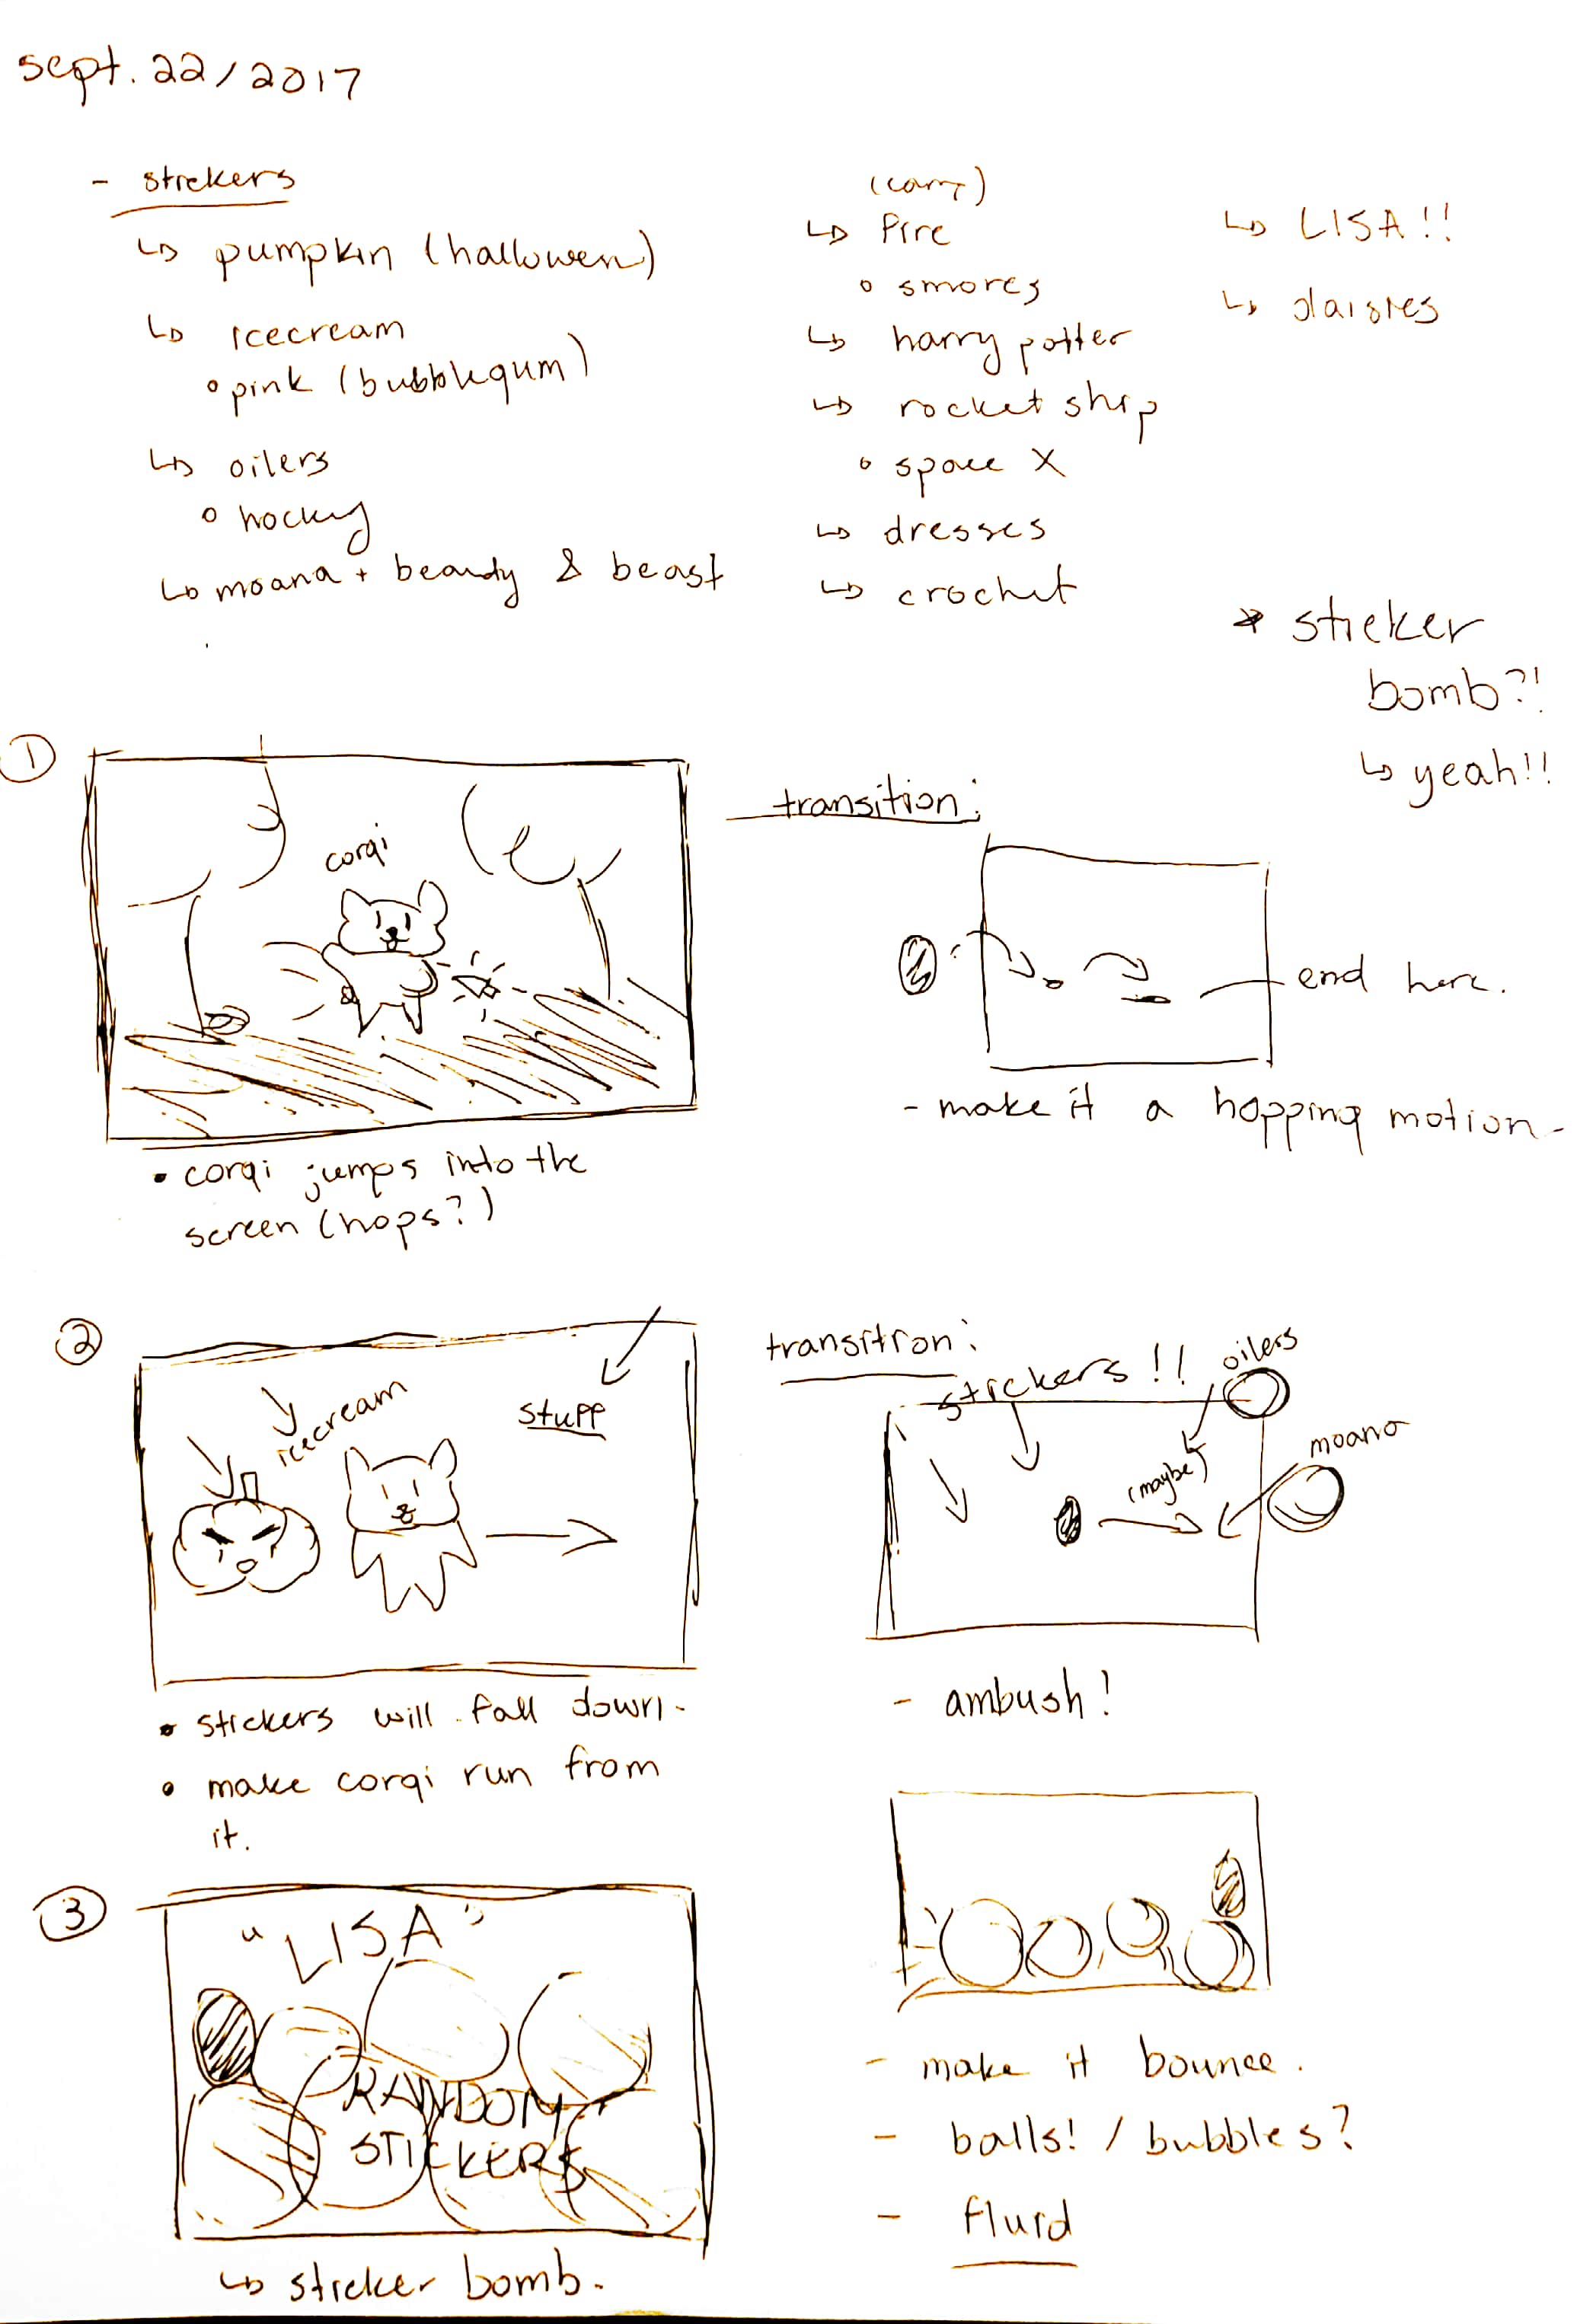 sept. 22/2017
- stickers
↳ pumpkin (hallowen)
↳ icecream
° pink (bubblegum)
↳ oilers
° hockey
↳ moana + beauty & beast
↳ fire
° smores
↳ harry potter
↳ rocket ship
° space X
↳ dresses
↳ crochet
↳ LISA!!
↳ daisies
* sticker
bomb?!
↳ yeah!!
①
corgi
• corgi jumps into the
screen (hops?)
transition:
end here.
- make it a hopping motion-
②
icecream
stuff
• stickers will fall down.
• make corgi run from
it.
transition:
stickers!!
oilers
moana
(maybe)
- ambush!
③
"LISA"
RANDOM
STICKERS
↳ sticker bomb.
- make it bounce.
- balls! / bubbles?
- fluid